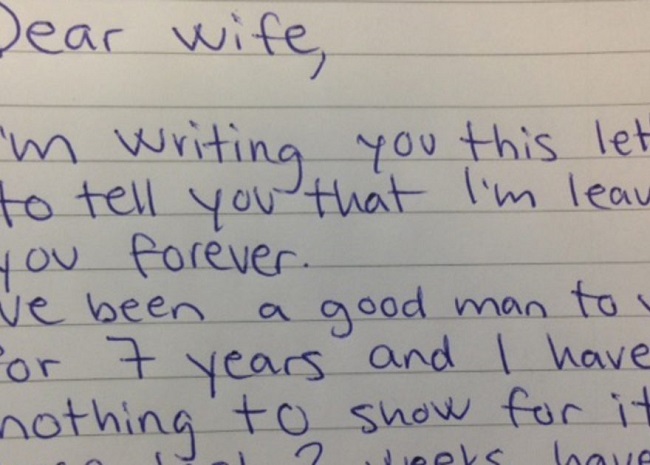 Dear wife,
I'm writing you this let
to tell you that I'm leav
you forever.
've been a good man to
for 7 years and I have
nothing to show for it
2 weeks have